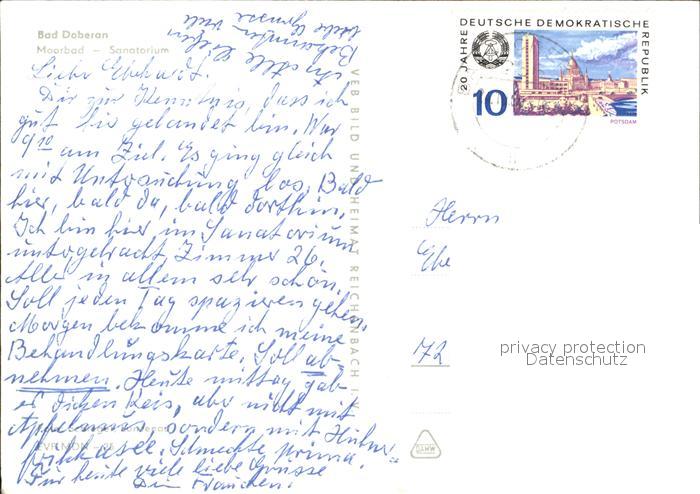 Bad Doberan
Moorbad – Sanatorium
20 JAHRE DEUTSCHE DEMOKRATISCHE REPUBLIK
10
POTSDAM
Lieber Ebehardt.
Dir zur Kenntnis, dass ich
gut hier gelandet bin. War
9 10 am Ziel. Es ging gleich
mit Untersuchung los. Bald
hier, bald da, bald dorthin.
Ich bin hier im Sanatorium
untergebracht Zimmer 26.
Alle in allem sehr schön.
Soll jeden Tag spazierengehen.
Morgen bekomme ich meine
Behandlungskarte. Soll ab-
nehmen. Heute mittag gab
es dicken Reis, aber nicht mit
Apfelmus sondern mit Hühner-
frikassee. Schmeckte prima.
Für heute viele liebe Grüsse
Dein Frauchen.
VEB BILD UND HEIMAT REICHENBACH I.
Herrn
Ebe
172
privacy protection
Datenschutz